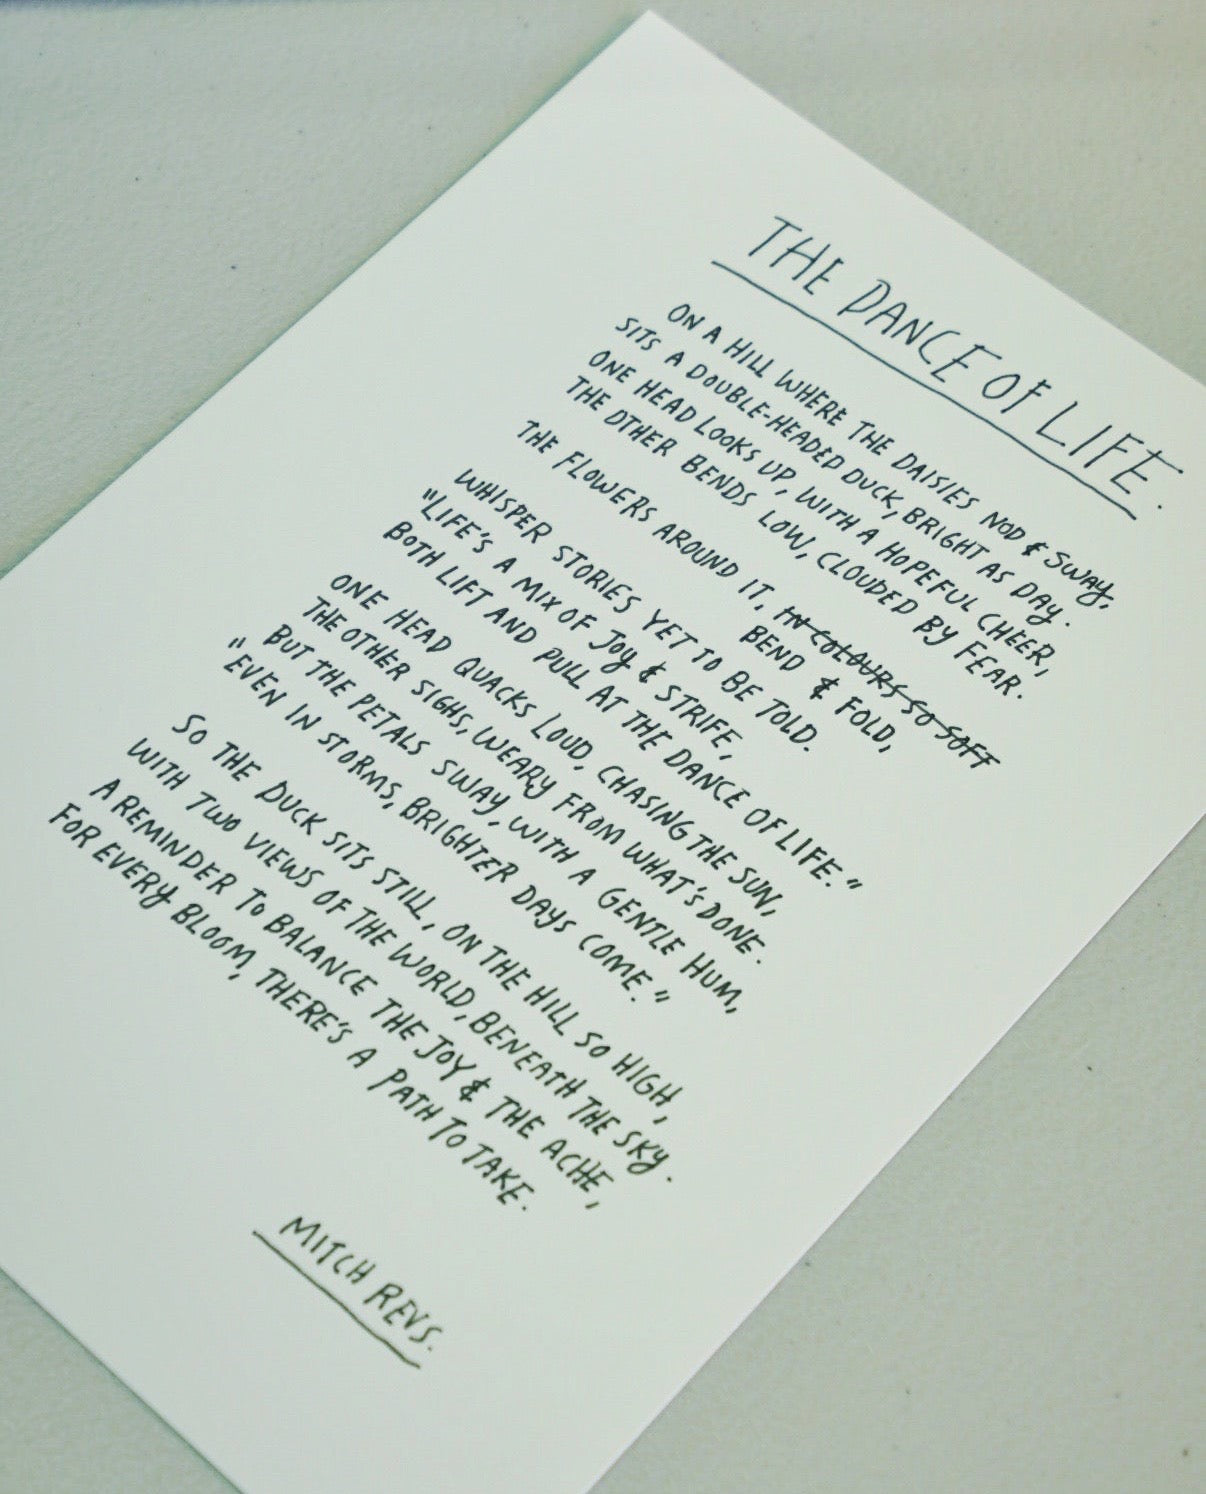 THE DANCE OF LIFE.
ON A HILL WHERE THE DAISIES NOD & SWAY,
SITS A DOUBLE-HEADED DUCK, BRIGHT AS DAY.
ONE HEAD LOOKS UP, WITH A HOPEFUL CHEER,
THE OTHER BENDS LOW, CLOUDED BY FEAR.
THE FLOWERS AROUND IT, IN COLOURS SO SOFT
BEND & FOLD,
WHISPER STORIES YET TO BE TOLD.
"LIFE'S A MIX OF JOY & STRIFE,
BOTH LIFT AND PULL AT THE DANCE OF LIFE."
ONE HEAD QUACKS LOUD, CHASING THE SUN,
THE OTHER SIGHS, WEARY FROM WHAT'S DONE.
BUT THE PETALS SWAY, WITH A GENTLE HUM,
"EVEN IN STORMS, BRIGHTER DAYS COME."
SO THE DUCK SITS STILL, ON THE HILL SO HIGH,
WITH TWO VIEWS OF THE WORLD, BENEATH THE SKY.
A REMINDER TO BALANCE THE JOY & THE ACHE,
FOR EVERY BLOOM, THERE'S A PATH TO TAKE.
MITCH REVS.